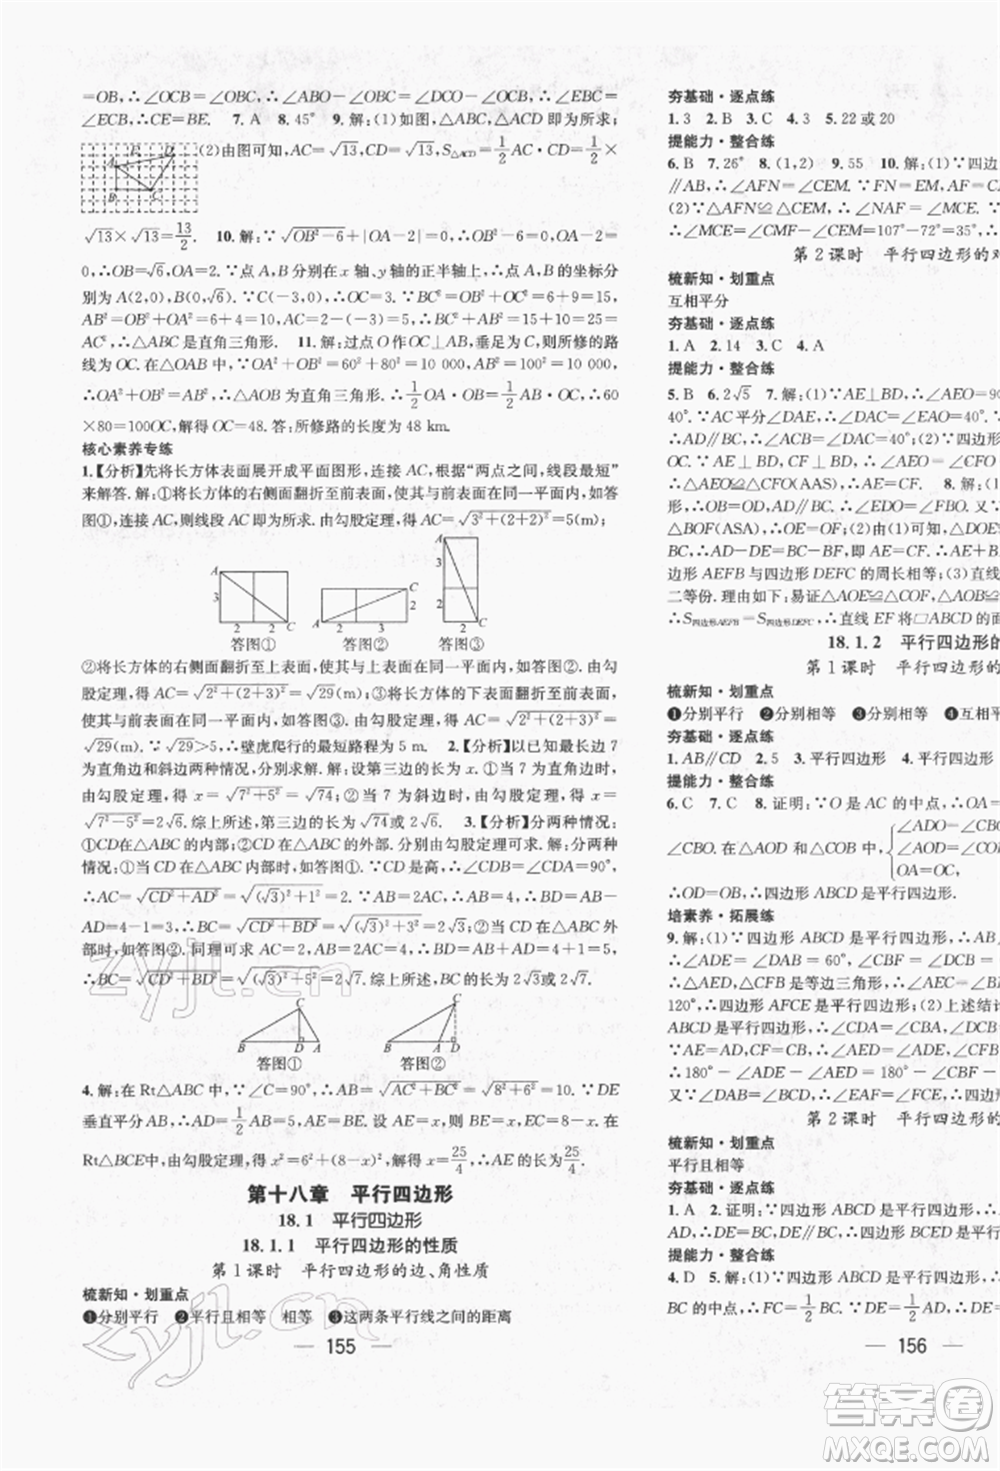 =OB,∴∠OCB=∠OBC,∴∠ABO-∠OBC=∠DCO-∠OCB,∴∠EBC=
∠ECB,∴CE=BE. 7.A 8.45° 9.解:(1)如图,△ABC,△ACD即为所求.
(2)由图可知,AC=√13,CD=√13,∴S△ACD=1/2AC·CD=1/2×
√13×√13=13/2. 10.解:∵√(OB²-6)+|OA-2|=0,∴OB²-6=0,OA-2=0,
∴OB=√6,OA=2.∵点A,点B分别在x轴、y轴的正半轴上,∴点A,B的坐标分
别为A(2,0),B(0,√6);(2)∵C(-3,0),∴OC=3.∵BC²=OB²+OC²=6+9=15,
AB²=OB²+OA²=6+4=10,AC=2-(-3)=5,∴AB²+BC²=10+15=25,AC²=25,
∴AB²+BC²=AC²,∴△ABC是直角三角形. 11.解:过点O作OC⊥AB,垂足为C,则所修的路
线为OC.在△OAB中,∵OA²+OB²=60²+80²=10 000,AB²=100²=10 000,
∴OA²+OB²=AB²,∴△AOB为直角三角形.∴1/2×100×OC=1/2×60
×80=OC,解得OC=48.答:所修路的长度为48 m.
核心素养专练
1.【分析】先将长方体表面展开成平面图形,连接AC,根据“两点之间,线段最短”
来解答.解:①将长方体的右侧面翻折至前表面,使其与前表面在同一平面内,如答
图①,连接AC,则线段AC即为所求.由勾股定理,得AC=√(3²+(2+2)²)=5(m);
A 3 2 2 C
答图①
A 3 2 C 2
答图②
C 3 2 A 2
答图③
②将长方体的右侧面翻折至上表面,使其与上表面在同一平面内,如答图②.由勾
股定理,得AC=√(2²+(2+3)²)=√29(m);③将长方体的下表面翻折至前表面,
使其与前表面在同一平面内,如答图③.由勾股定理,得AC=√(2²+(2+3)²)=
√29(m).∵√29>5,∴壁虎爬行的最短路程为5 m. 2.【分析】以最大边长7
为直角边和斜边两种情况,分别求解即可.解:设第三边的长为x.①当7为直角边
时,由勾股定理,得x=√(7²+5²)=√74;②当7为斜边时,由勾股定理,得x=
√(7²-5²)=2√6.综上所述,第三边的长为√74或2√6. 3.【分析】分两种情况:
①CD在△ABC的内部;②CD在△ABC的外部.分别根据勾股定理可求.解:分两种
情况:①当CD在△ABC内部时,如答图①.∵CD是高,∴∠CDB=∠CDA=90°,
∴AC=√(CD²+AD²)=√((√3)²+1²)=2.∵AB=2AC,∴AB=4.∴BD=AB-
AD=4-1=3,∴BC=√(CD²+BD²)=√((√3)²+3²)=2√3;②当CD在△ABC外
部时,如答图②.同理可求AC=2,AB=4.∴BD=AB+AD=4+1=5,
∴BC=√(CD²+BD²)=√((√3)²+5²)=2√7.综上所述,BC的长为2√3或2√7.
C B D A
答图①
C B A D
答图②
4.解:在Rt△ABC中,∵∠C=90°,∴AB=√(AC²+BC²)=√(8²+6²)=10.∵DE
垂直平分AB,∴AD=1/2AB=5,AE=BE.设AE=x,则BE=x,EC=8-x.在
Rt△BCE中,由勾股定理,得x²=6²+(8-x)²,解得x=25/4,∴AE的长为25/4.
第十八章 平行四边形
18.1 平行四边形
18.1.1 平行四边形的性质
第1课时 平行四边形的边、角性质
梳新知·划重点
❶分别平行 ❷平行且相等 相等 ❸这两条平行线之间的距离
155
夯基础·逐点练
1.3 2.B 3.C 4.3 5.22或20
提能力·整合练
6.B 7.26° 8.(1,2) 9.55 10.解:(1)∵四边
∥AB,∴∠AFN=∠CEM.∵FN=EM,AF=C
(2)∵△AFN≌△CEM,∴∠NAF=∠ECM.∵
∴∠MCE=∠CMF-∠CEM=107°-72°=35°,∴
第2课时 平行四边形的对
梳新知·划重点
互相平分
夯基础·逐点练
1.A 2.14 3.C 4.A
提能力·整合练
5.B 6.2√5 7.解:(1)∵AE⊥BD,∴∠AEO=90
40°.∵AC平分∠DAE,∴∠DAC=∠EAO=40°.
∴AD∥BC,∴∠ACB=∠DAC=40°;(2)∵四边形
OC.∵AE⊥BD,CF⊥BD,∴∠AEO=∠CFO=
∴△AEO≌△CFO(AAS),∴AE=CF. 8.解:(1)
形,∴AD∥BC,OB=OD,∴∠EDO=∠FBO.又∵
△BOF(ASA),∴OE=OF;(2)∵四边形ABCD是
∴AD-DE=BC-BF,即AE=CF,∴AE+
边形AEFB与四边形DEFC的周长相等;(3)直线
二等份.理由如下:易证△AOE≌△COF,△AOB
∴S四边形AEFB=S四边形DEFC,∴直线EF将□ABCD的面
18.1.2 平行四边形的
第1课时 平行四边形的
梳新知·划重点
❶分别平行 ❷分别相等 ❸分别相等 ❹互相平
夯基础·逐点练
1.AB∥CD 2.5 3.平行四边形 4.平行四边形
提能力·整合练
6.C 7.C 8.证明:∵O是AC的中点,∴OA=
∠CBO.在△AOD和△COB中,∵{∠ADO=∠CBO, ∠AOD=∠COB, OA=OC,
∴OD=OB,∴四边形ABCD是平行四边形.
培素养·拓展练
9.解:(1)∵四边形ABCD是平行四边形,∴A
∴∠ADE=∠DAB=60°,∠CBF=∠DCB=
∴△AED,△CFB是等边三角形,∴∠AEC=∠BFC
120°,∴四边形AFCE是平行四边形;(2)上述结论
ABCD是平行四边形,∴∠CDA=∠CBA,∠DCB
AE=AD,CF=CB,∴∠AED=∠ADE,∠CFB
∴180°-∠ADE-∠AED=180°-∠CBF-
又∵∠DAB=∠BCD,∴∠EAF=∠FCE,∴四边形
第2课时 平行四边形的
梳新知·划重点
平行且相等
夯基础·逐点练
1.A 2.证明:∵四边形ABCD是平行四边形,∴
AD,∴DE=BC,DE∥BC,∴四边形BCED是平行
提能力·整合练
4.D 5.解:(1)∵四边形ABCD是平行四边形,∴
BC的中点,∴DE=1/2AD,BF=1/2BC,∴DE=B
156
答案圈
MXQE.COM
zyjl.cn